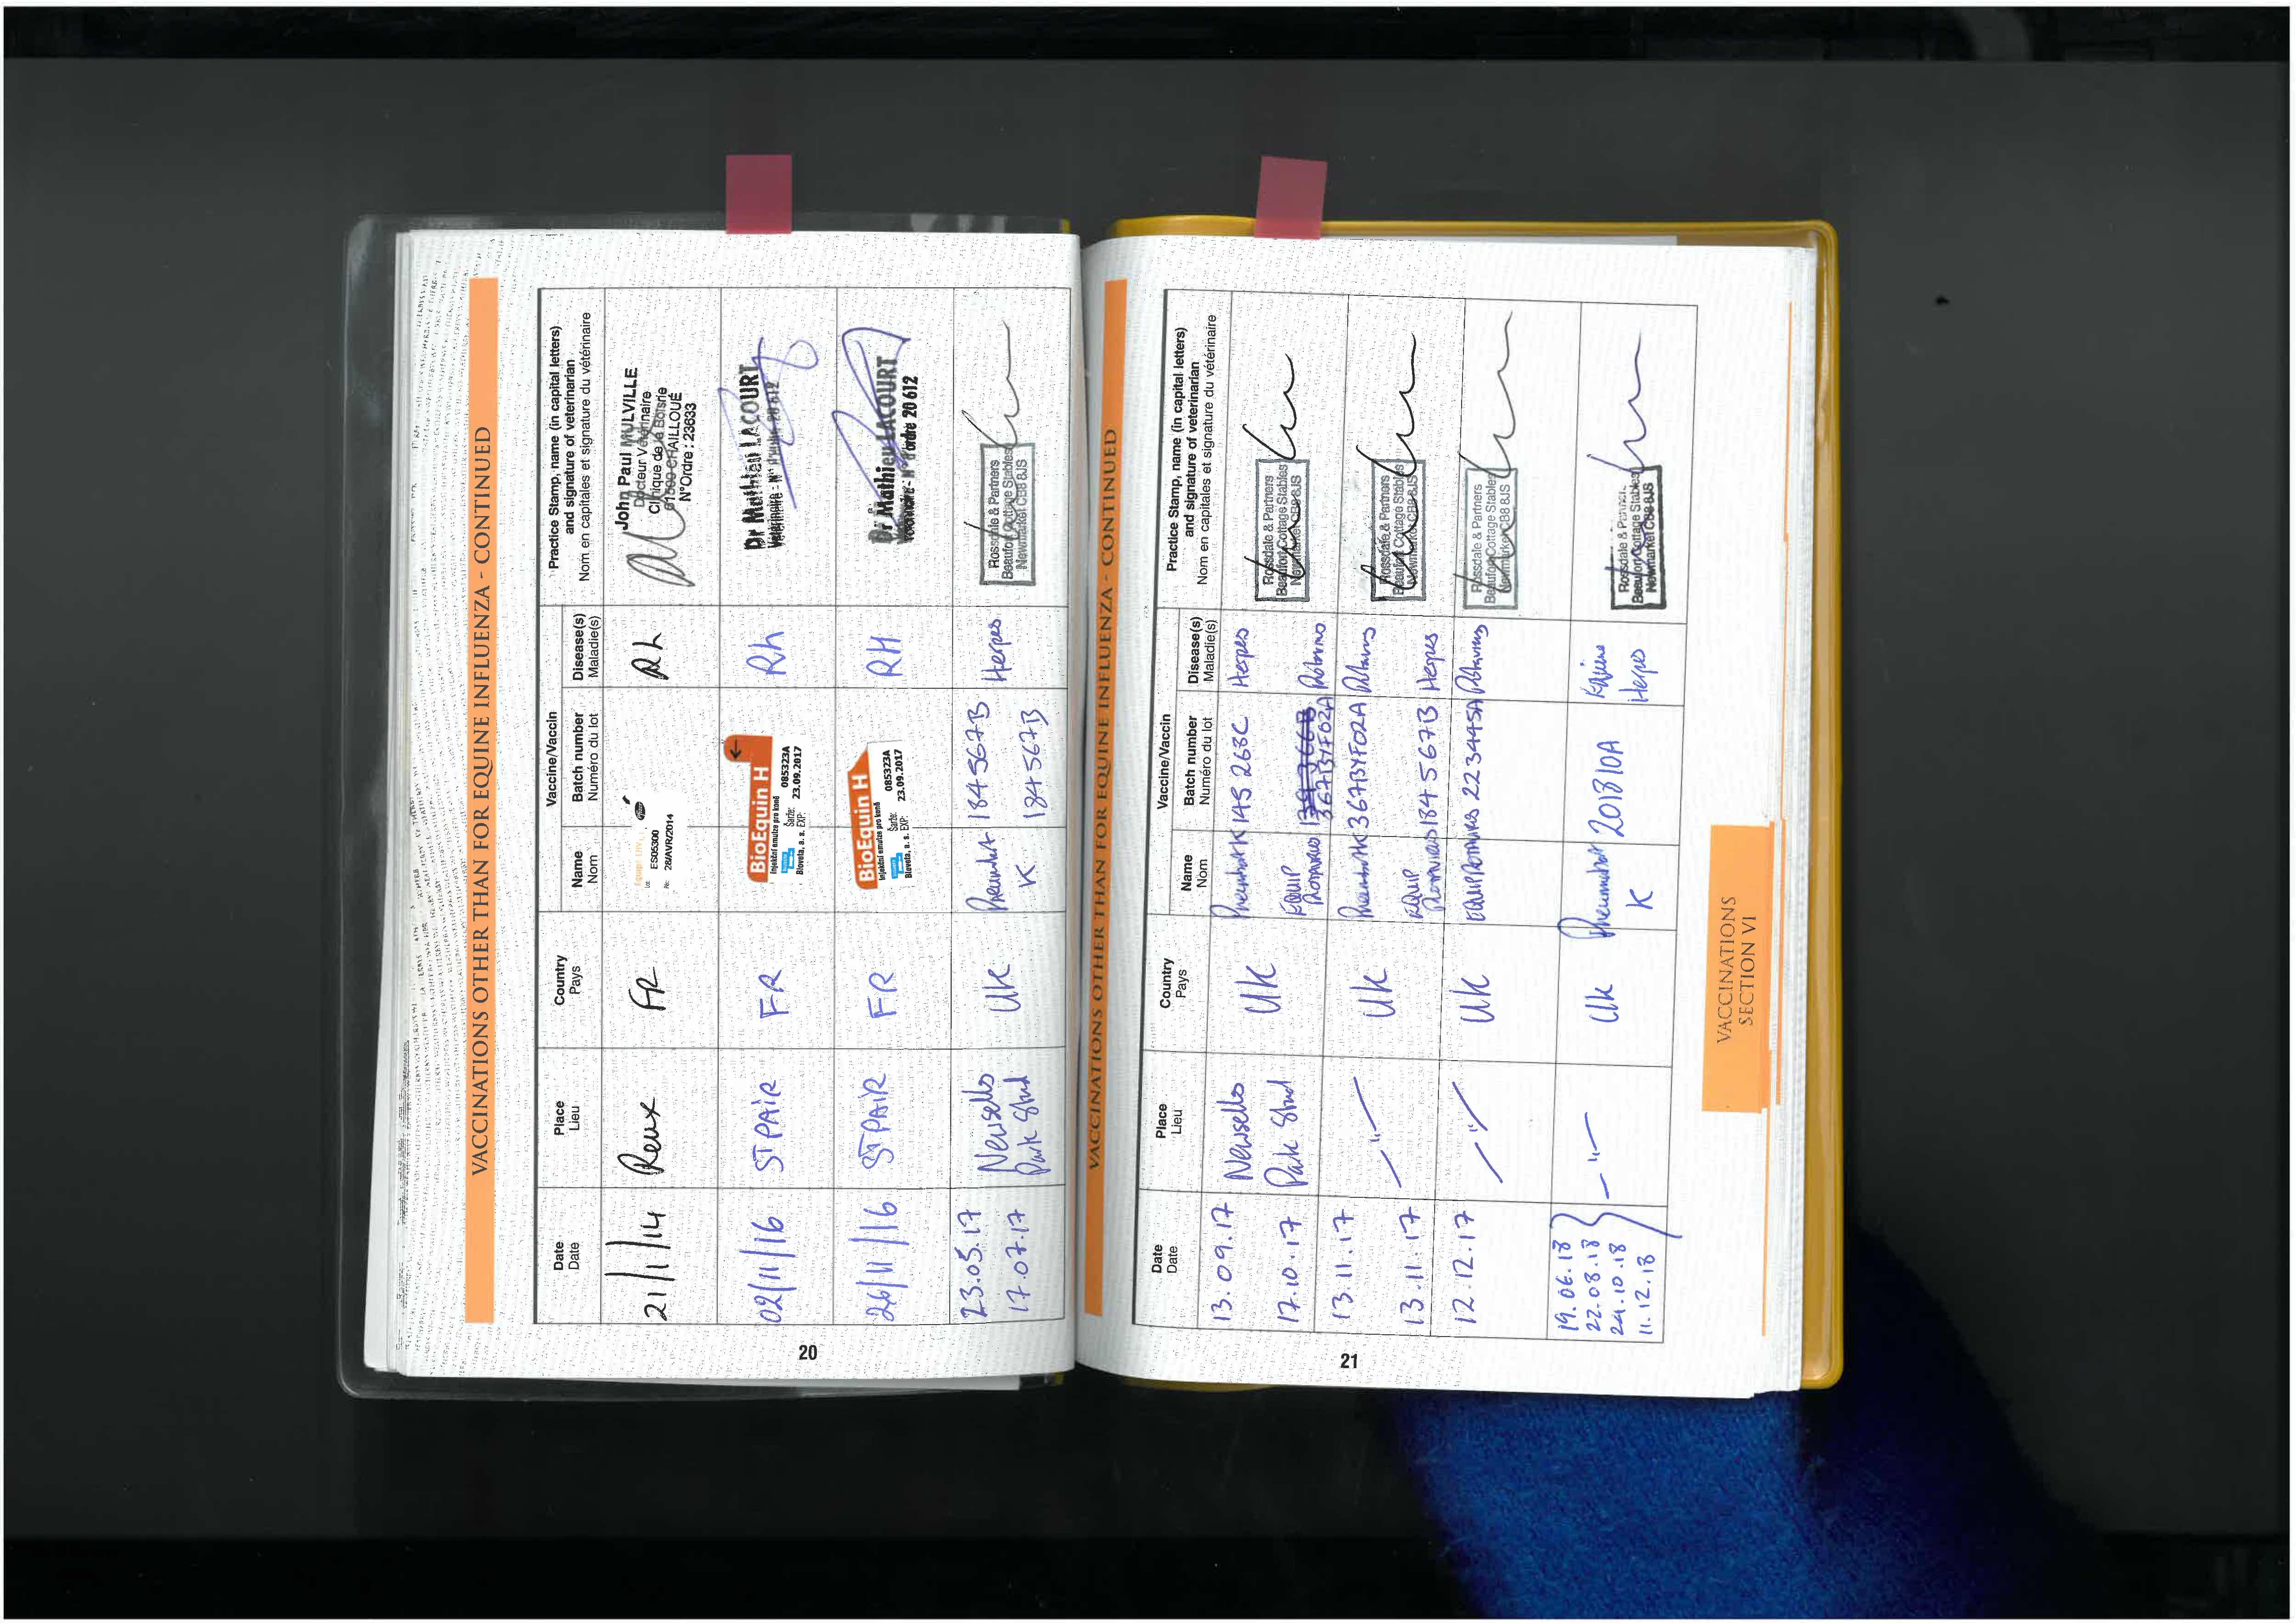 VACCINATIONS OTHER THAN FOR EQUINE INFLUENZA - CONTINUED
Date
Date
Place
Lieu
Country
Pays
Vaccine/Vaccin
Name
Nom
Batch number
Numéro du lot
Disease(s)
Maladie(s)
Practice Stamp, name (in capital letters)
and signature of veterinarian
Nom en capitales et signature du vétérinaire
21/1/14
Reux
FR
ES05300
28/AVR/2014
Rh
John Paul MULVILLE
Docteur Vétérinaire
Clinique de la Boisrie
61500 CHAILLOUÉ
N°Ordre : 23633
02/11/16
ST PAIR
FR
BioEquin H
Injekční emulze pro koně
Šarže: 085323A
EXP: 23.09.2017
Bioveta, a. s.
Rh
Dr Mathieu LACOURT
26/11/16
ST PAIR
FR
BioEquin H
Injekční emulze pro koně
Šarže: 085323A
EXP: 23.09.2017
Bioveta, a. s.
RH
Dr Mathieu LACOURT
N° d'ordre 20 612
23.05.17
17.07.17
Newsells
Park Stud
UK
K
184567B
184567B
Herpes
Rossdale & Partners
Beaufort Cottage Stables
Newmarket CB8 8JS
20
VACCINATIONS OTHER THAN FOR EQUINE INFLUENZA - CONTINUED
Date
Date
Place
Lieu
Country
Pays
Vaccine/Vaccin
Name
Nom
Batch number
Numéro du lot
Disease(s)
Maladie(s)
Practice Stamp, name (in capital letters)
and signature of veterinarian
Nom en capitales et signature du vétérinaire
13.09.17
Newsells
UK
145263C
Herpes
17.10.17
Park Stud
EQUIP
367BYF02A
Rossdale & Partners
Beaufort Cottage Stables
Newmarket CB8 8JS
13.11.17
— " —
UK
367BYF02A
13.11.17
EQUIP
184567B
Herpes
Rossdale & Partners
Beaufort Cottage Stables
Newmarket CB8 8JS
12.12.17
— " —
UK
EQUIP
223445A
Rossdale & Partners
Beaufort Cottage Stables
Newmarket CB8 8JS
19.06.18
22.08.18
24.10.18
11.12.18
— " —
UK
K
201810A
Equine
Herpes
Rossdale & Partners
Beaufort Cottage Stables
Newmarket CB8 8JS
21
VACCINATIONS
SECTION VI